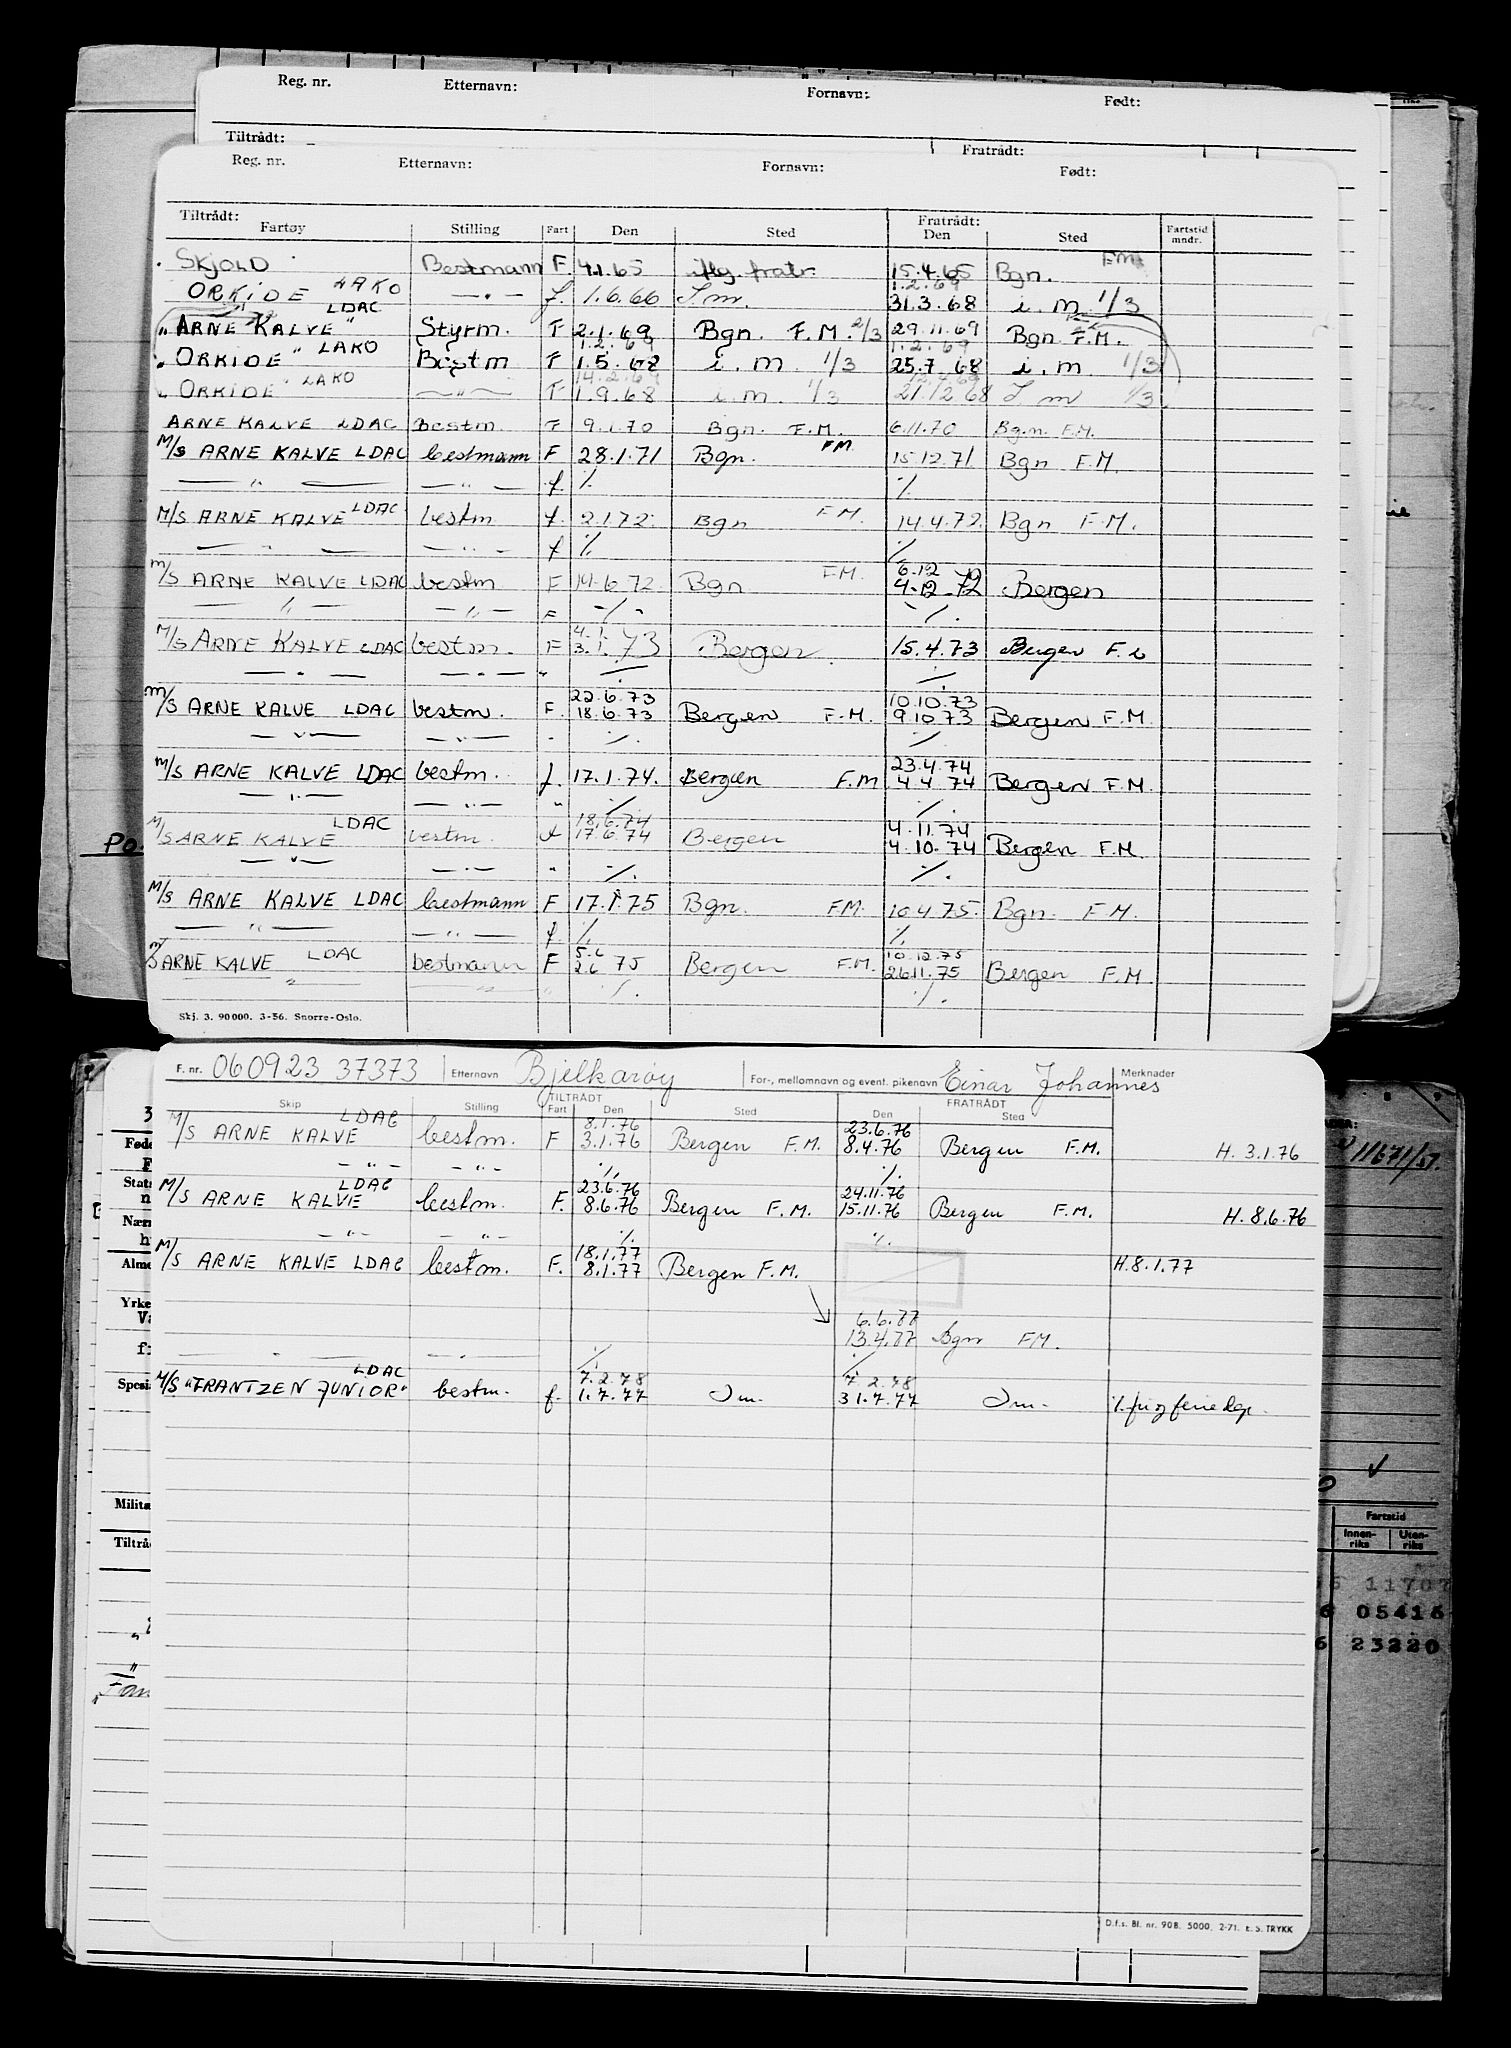 Reg. nr. Etternavn: Fornavn: Født:
Tiltrådt: Fratrådt:
Reg. nr. Etternavn: Fornavn: Født:
Tiltrådt: Fratrådt:
Fartøy Stilling Fart Den Sted Den Sted Fartstid mndr.
SKJOLD Bestmann F. 4.1.65 iflg. fratr. 15.4.65 Bgn. F.M.
1.2.69
ORKIDE LAKO — " — f. 1.6.66 I m. 31.3.68 i. m. 1/3
"ARNE KALVE" LDAC Styrm. F 2.1.69 Bgn. F.M. 2/3 29.11.69 Bgn. F.M.
1.2.69 1.2.69
"ORKIDE" LAKO Bestm F 1.5.68 i. m. 1/3 25.7.68 i. m. 1/3
14.2.69 12.7.69
"ORKIDE" LAKO — " — F 1.9.68 i. m. 1/3 21.12.68 I m 1/3
ARNE KALVE LDAC Bestm. F 9.1.70 Bgn. F.M. 6.11.70 Bgn. F.M.
M/S ARNE KALVE LDAC bestmann F 28.1.71 Bgn. F.M. 15.12.71 Bgn F.M.
— " — — " — f. ./. ./.
M/S ARNE KALVE LDAC bestm. f. 2.1.72. Bgn F.M. 14.4.72. Bgn F.M.
— " — — " — f ./. ./.
6.12 72
M/S ARNE KALVE LDAC bestm. F 14.6.72. Bgn F.M. 4.12.72 Bergen
— " — — " — F ./. ./.
4.1.
M/S ARNE KALVE LDAC bestm. F 3.1.73 Bergen. 15.4.73 Bergen F.
— " — — " — " ./. ./.
22.6.73 10.10.73
M/S ARNE KALVE LDAC bestm. F. 18.6.73 Bergen F.M. 9.10.73 Bergen F.M.
— " — — " — - ./. ./.
23.4.74
M/S ARNE KALVE LDAC bestm. f. 17.1.74. Bergen F.M 4.4.74 Bergen F.M.
— " — — " — " ./. ./.
18.6.74 4.11.74
M/S ARNE KALVE LDAC bestm. f 17.6.74 Bergen 4.10.74 Bergen F.M.
— " — — " — " ./. ./.
M/S ARNE KALVE LDAC bestmann F 17.1.75 Bgn. F.M. 10.4.75. Bgn. F.M.
— " — — " — f ./. ./.
5.6 10.12.75
M/S ARNE KALVE LDAC bestmann F 2.6 75 Bergen F.M. 26.11.75 Bergen F.M.
— " — — " — " ./. ./.
Skj. 3. 90 000. 3-56. Snorre-Oslo.
Po.
F. nr. 060923 37373 Etternavn Bjelkarøy For-, mellomnavn og event. pikenavn Einar Johannes Merknader
TILTRÅDT FRATRÅDT
Skip Stilling Fart Den Sted Den Sted
8.1.76 23.6.76
M/S ARNE KALVE LDAC bestm. F 3.1.76 Bergen F.M. 8.4.76 Bergen F.M. H. 3.1.76
— " — — " — ./. ./.
23.6.76 24.11.76
M/S ARNE KALVE LDAC bestm. F. 8.6.76 Bergen F.M. 15.11.76 Bergen F.M. H. 8.6.76
— " — — " — ./. ./.
18.1.77
M/S ARNE KALVE LDAC bestm. F. 8.1.77 Bergen F.M. H. 8.1.77
6.6.77
13.4.77 Bgn F.M.
— " — — " — ./. ./.
7.2.78 7.2.78
M/S "FRANTZEN JUNIOR" LDAC bestm. f. 1.7.77 Im. 31.7.77 Im. ./. fri og feriedgr.
D.f.s. Bl. nr. 908. 5000. 2-71. E. S. TRYKK
11671/51.
Fartstid
Innen-riks Uten-riks
11707
05416
23220
Føde
Stats
Nær
Alme
Yrke
Spesi
Milita
Tiltrå